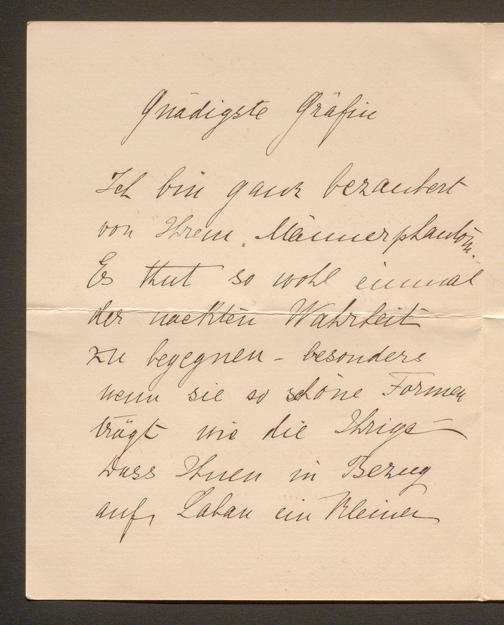 Gnädigste Gräfin
Ich bin ganz bezaubert
von Ihrem „Männerphantom".
Es thut so wohl einmal
der nackten Wahrheit
zu begegnen – besonders
wenn sie so schöne Formen
trägt wie die Ihrige –
Dass Ihnen in Bezug
auf Laban ein kleiner